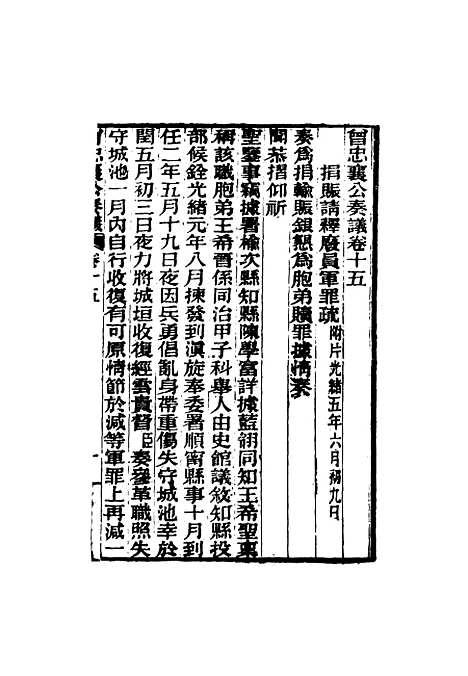 曾忠襄公奏議卷十五
捐賑請釋廢員軍罪疏 附片光緒五年六月初九日
奏爲捐輸賑銀懇爲胞弟贖罪據情奏
聞恭摺仰祈
聖鑒事竊據署榆次縣知縣陳學富詳據藍翎同知王希聖稟
稱該職胞弟王希晉係同治甲子科舉人由史館議敘知縣投
部候銓光緒元年八月揀發到滇旋奉委署順甯縣事十月到
任二年五月十九日夜因兵勇倡亂身帶重傷失守城池幸於
閏五月初三日夜力將城垣收復經雲貴督臣奏參革職照失
守城池一月內自行收復有可原情節於減等軍罪上再減一
曾忠襄公奏議 卷十五 一